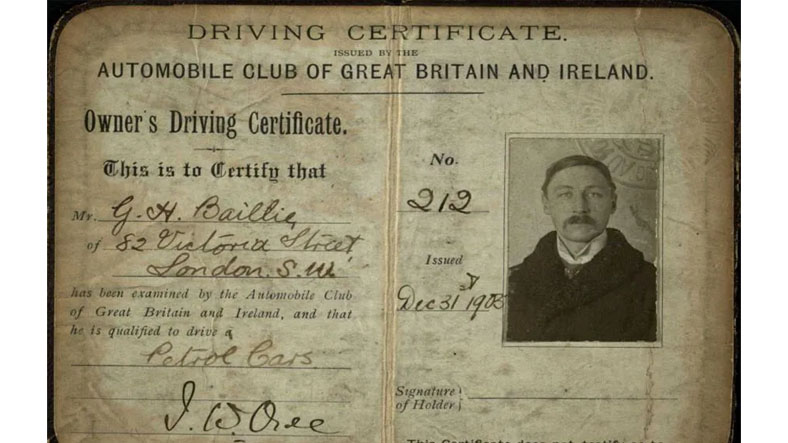 DRIVING CERTIFICATE.
ISSUED BY THE
AUTOMOBILE CLUB OF GREAT BRITAIN AND IRELAND.
Owner's Driving Certificate.
This is to Certify that
Mr. G. H. Baillie
of 82 Victoria Street
London. S.W.
has been examined by the Automobile Club
of Great Britain and Ireland, and that
he is qualified to drive a
Petrol Cars
No.
212
Issued
Dec 31st 1903
Signature
of Holder
This Certificate does not